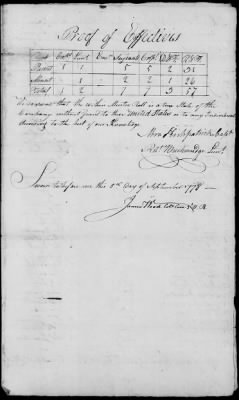 Proof of Effectives
Capt Lieut Ens Sergeants Corpl D&F
Present 1 1 5 5 2 31
Absent 1 2 2 1 26
Total 1 2 7 7 3 57
We swear that the within Muster Roll is a true State of the
Company without fraud to these United States or to any Individual
According to the best of our Knowledge
Kirkpatrick Capt
Lieut
Sworn to before me this 5th Day of September 1778
James